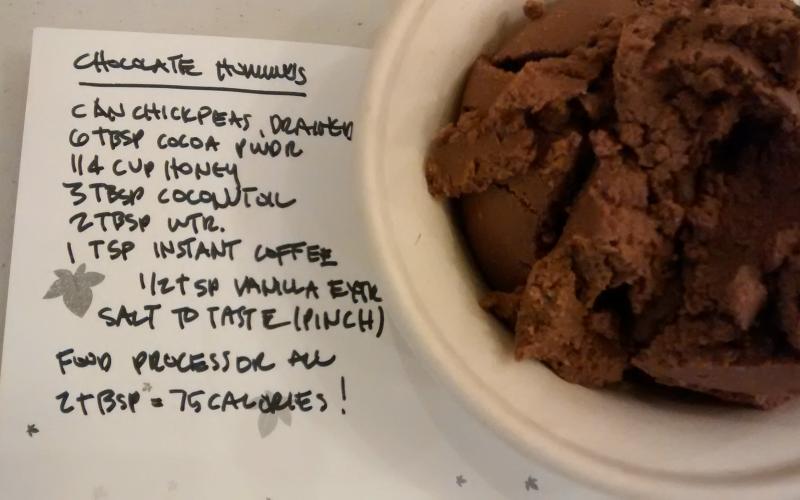 CHOCOLATE HUMMUS
CAN CHICKPEAS, DRAINED
6 TBSP COCOA PWDR
1/4 CUP HONEY
3 TBSP COCONUT OIL
2 TBSP WTR.
1 TSP INSTANT COFFEE
1/2 TSP VANILLA EXTR
SALT TO TASTE (PINCH)
FOOD PROCESSOR ALL
2 TBSP = 75 CALORIES!